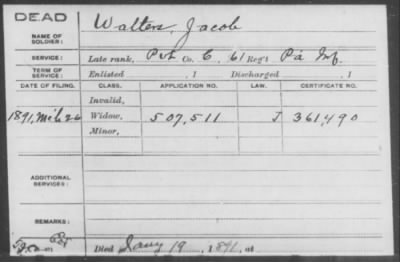 DEAD
NAME OF SOLDIER: Walters, Jacob
SERVICE: Late rank, Pvt Co. C, 61 Reg't Pa Inf.
TERM OF SERVICE: Enlisted , 1 Discharged , 1
DATE OF FILING. CLASS. APPLICATION NO. LAW. CERTIFICATE NO.
Invalid,
1891, Mch 26 Widow, 507,511 J 361,490
Minor,
ADDITIONAL SERVICES:
REMARKS:
Died Jany 19, 1891, at